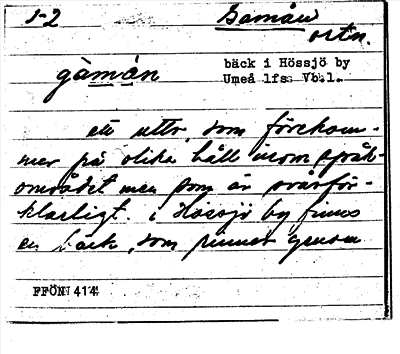 1-2
Gamån
ortn.
bäck i Hössjö by
Umeå lfs. Vb.l.
gàmàn
ett uttr. som förekom-
mer på olika håll inom språk-
området men som är svårför-
klarligt. i Hössjö by finns
en bäck, som rinner genom
FFÖN 414